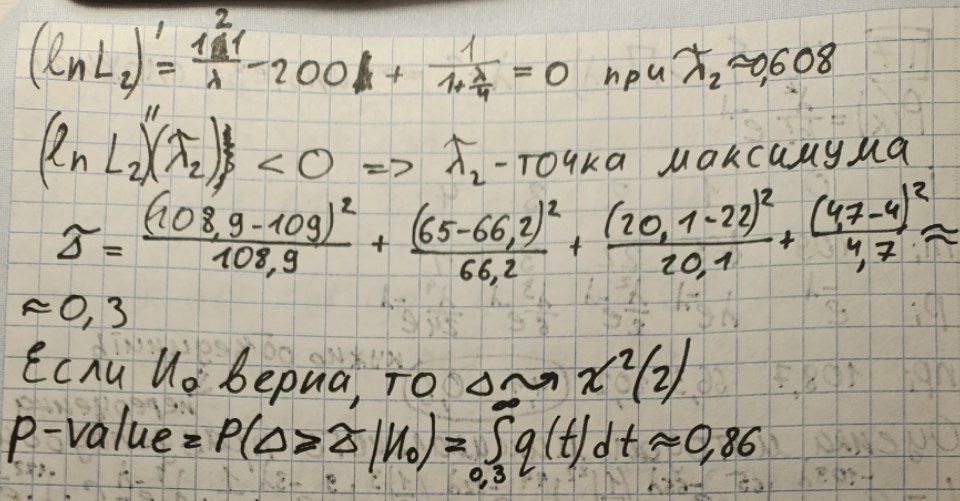 (ln L₂)' = 121/λ - 200 + 1/(1+λ/4) = 0 при λ̃₂ ≈ 0,608
(ln L₂)''(λ̃₂) < 0 => λ̃₂ - точка максимума
Δ̃ = (108,9-109)²/108,9 + (65-66,2)²/66,2 + (20,1-22)²/20,1 + (4,7-4)²/4,7 ≈
≈ 0,3
Если H₀ верна, то Δ ⇝ χ²(2)
p-value = P(Δ ≥ Δ̃ | H₀) = ∫_{0,3}^{∞} q(t)dt ≈ 0,86